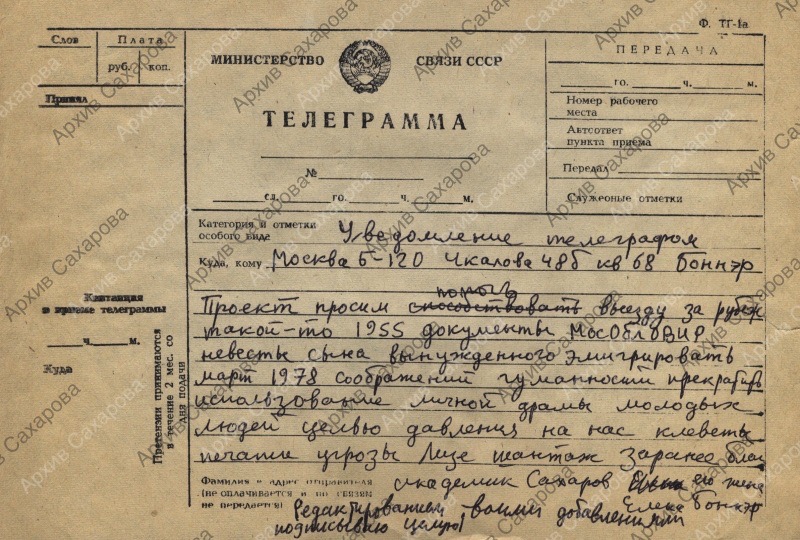 Ф. ТГ-1а
Слов Плата
руб. коп.
Принял
МИНИСТЕРСТВО СВЯЗИ СССР
ТЕЛЕГРАММА
№
сл. го. ч. м.
ПЕРЕДАЧА
го. ч. м.
Номер рабочего
места
Автоответ
пункта приема
Передал
Служебные отметки
Категория и отметки
особого вида
Уведомление телеграфом
Куда, кому Москва Б-120 Чкалова 48б кв 68 Боннэр
Квитанция
о приеме телеграммы
ч. м.
Куда
Претензии принимаются
в течение 2 мес. со
дня подачи
помочь
Проект просим способствовать выезду за рубеж
такой-то 1955 документы МосОблОВИР
невесты сына вынужденного эмигрировать
март 1978 соображений гуманности прекратить
использование личной драмы молодых
людей целью давления на нас клеветы
печати угрозы Лизе шантаж заранее благ
Фамилия и адрес отправителя
(не оплачивается и по связям
не передается)
академик Сахаров его жена
Елена Боннэр
Редактированием твоими добавлениями
подписываю целую
Архив Сахарова